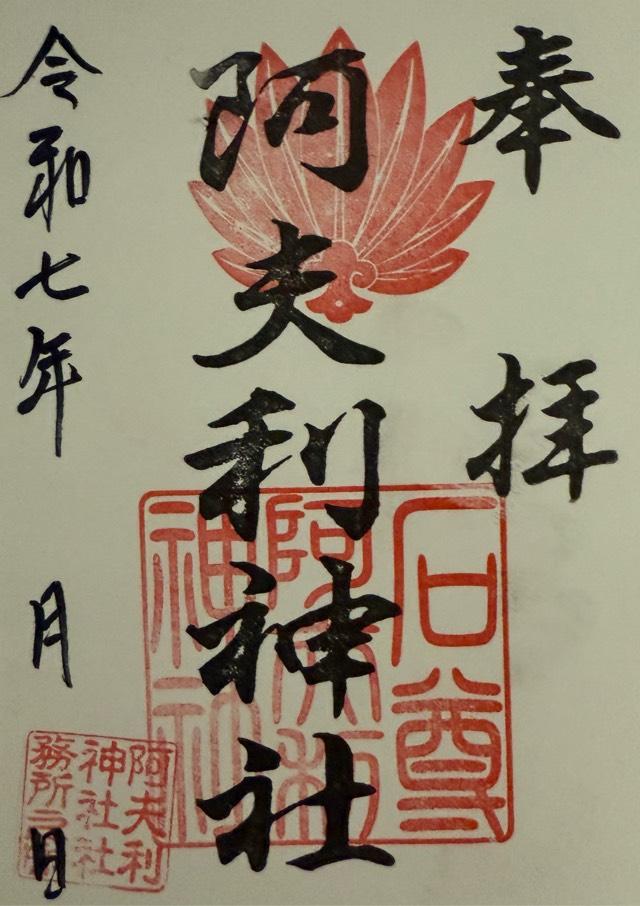 奉拝
阿夫利神社
石尊
阿夫利
神社
令和七年 月 日
阿夫利
神社社
務所